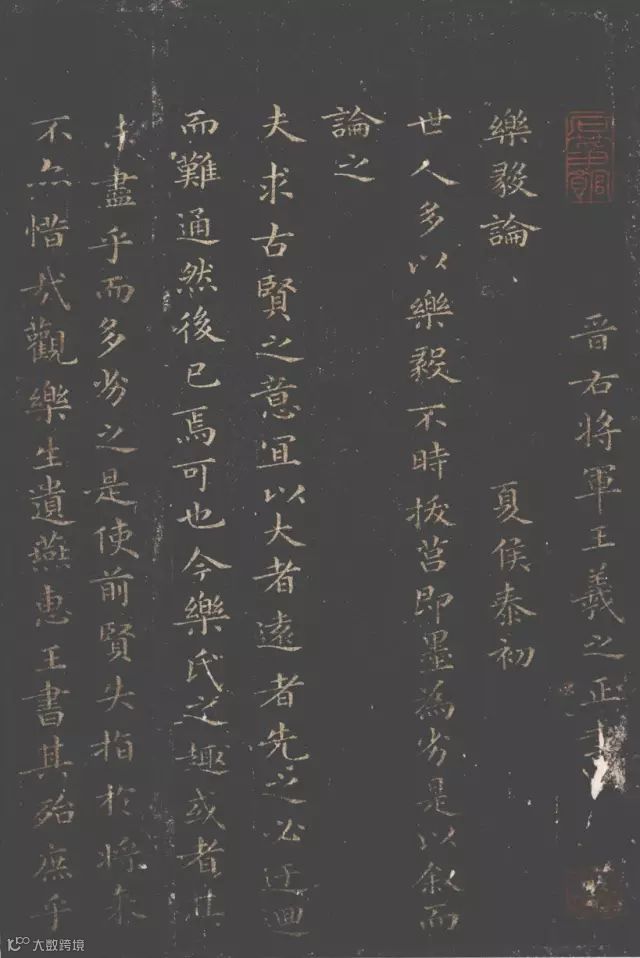 晉右將軍王羲之正書
樂毅論
夏侯泰初
世人多以樂毅不時拔莒即墨為劣是以叙而
論之
夫求古賢之意宜以大者遠者先之必迂迴
而難通然後已焉可也今樂氏之趣或者其
未盡乎而多劣之是使前賢失指於將來
不亦惜哉觀樂生遺燕惠王書其殆庶乎
大数跨境